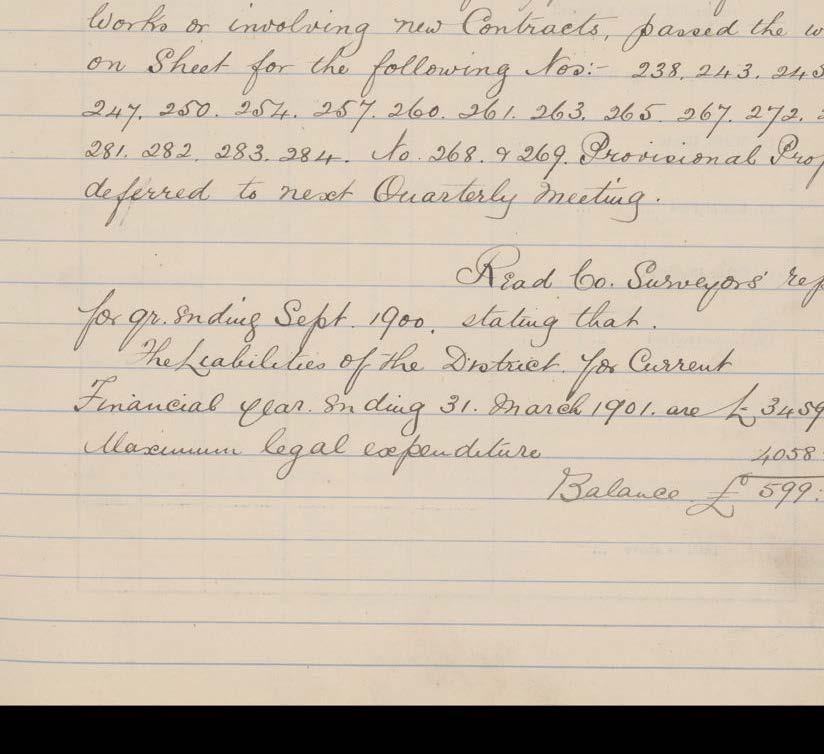 Works or involving new Contracts, passed the w
on Sheet for the following Nos:- 238. 243. 245
247. 250. 254. 257. 260. 261. 263. 265. 267. 272.
281. 282. 283. 284. No. 268. & 269. Provisional Prop
deferred to next Quarterly Meeting.
Read Co. Surveyors' rep
for qr. Ending Sept. 1900. stating that.
The Liabilities of the District. for Current
Financial year. Ending 31. March 1901. are £ 3459
Maximum legal expenditure 4058
Balance £ 599: